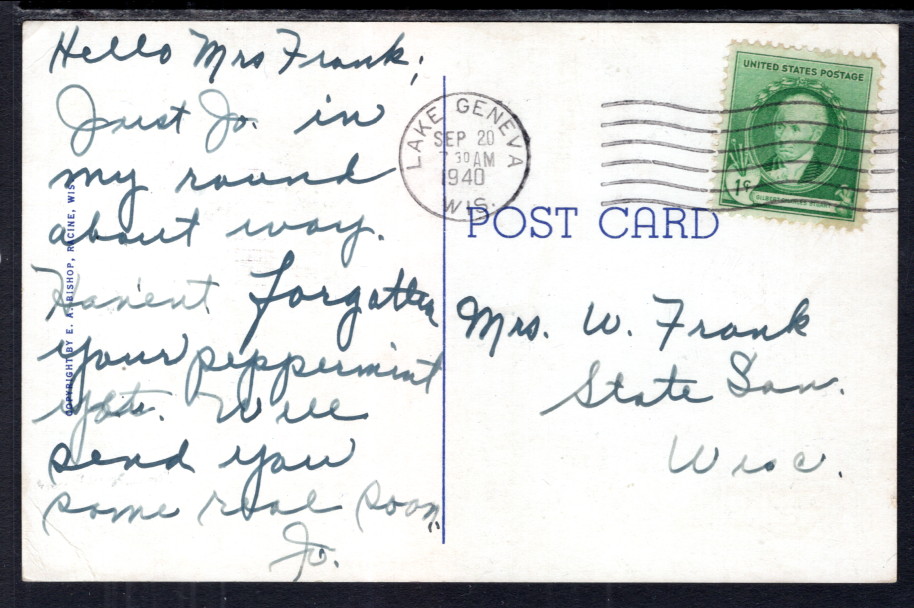 Hello Mrs Frank;
Just Jo. in
my round
about way.
Haven't forgotten
your peppermint
yet. Will
send you
some real soon.
Jo.
COPYRIGHT BY E. A. BISHOP, RACINE, WIS.
LAKE GENEVA
SEP 20
7 30 AM
1940
WIS.
UNITED STATES POSTAGE
1¢
GILBERT CHARLES STUART
POST CARD
Mrs. W. Frank
State San.
Wisc.